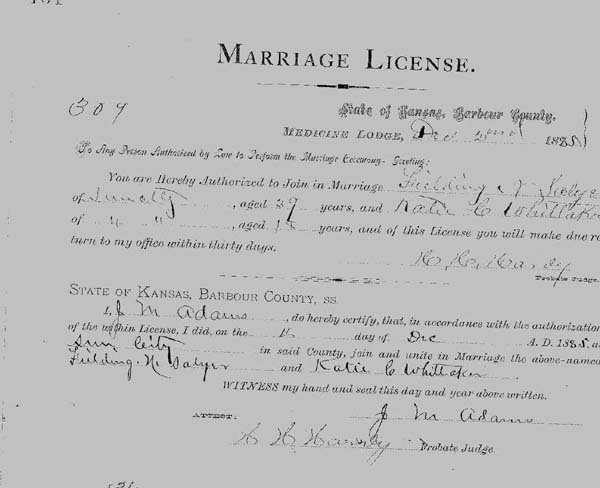 MARRIAGE LICENSE.
309
State of Kansas, Barbour County.
MEDICINE LODGE, Dec 2nd 1885
To Any Person Authorized by Law to Perform the Marriage Ceremony- Greeting:
You are Hereby Authorized to Join in Marriage Fielding N
of Sun City, aged 29 years, and Katie C Whittaker
of " ", aged 18 years, and of this License you will make due re
turn to my office within thirty days.
H. H. Hardy
Probate Judge.
STATE OF KANSAS, BARBOUR COUNTY, SS
I, J M Adams, do hereby certify, that, in accordance with the authorization
of the within License, I did, on the day of Dec A. D. 1885, a
Sun City in said County, join and unite in Marriage the above-named
Fielding. N. and Katie C Whittaker
WITNESS my hand and seal this day and year above written.
J M Adams
ATTEST:
H H Hardy Probate Judge.